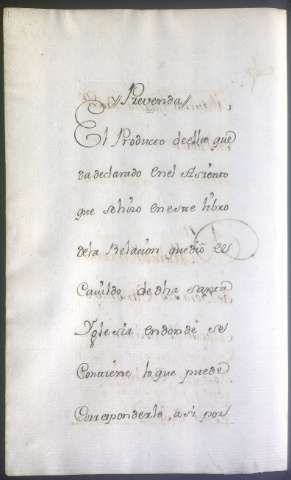 Prevenda
El Producto de ella que
da declarado en el Asiento
que se hizo en este libro
de la Relacion que dio el
Cavildo de dha santa
Yglesia en donde se
Contiene lo que puede
Corresponderle, asi por